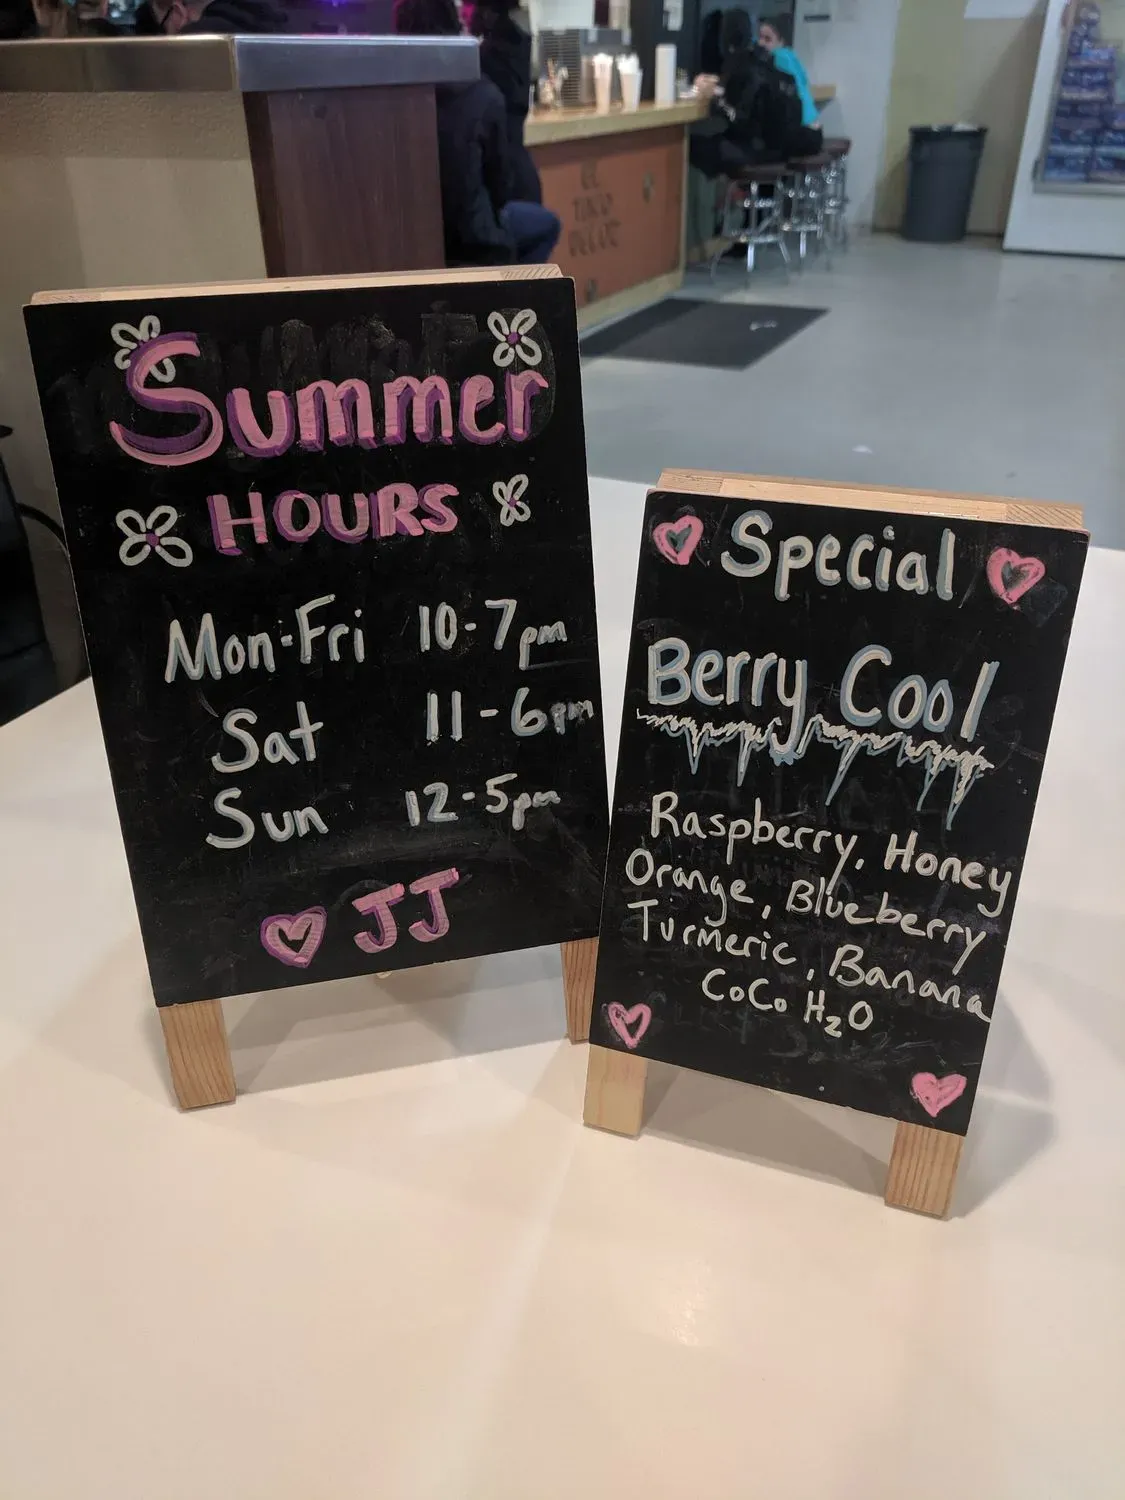 Summer
HOURS
Mon-Fri 10-7pm
Sat 11-6pm
Sun 12-5pm
JJ
Special
Berry Cool
Raspberry, Honey
Orange, Blueberry
Turmeric, Banana
CoCo H₂O